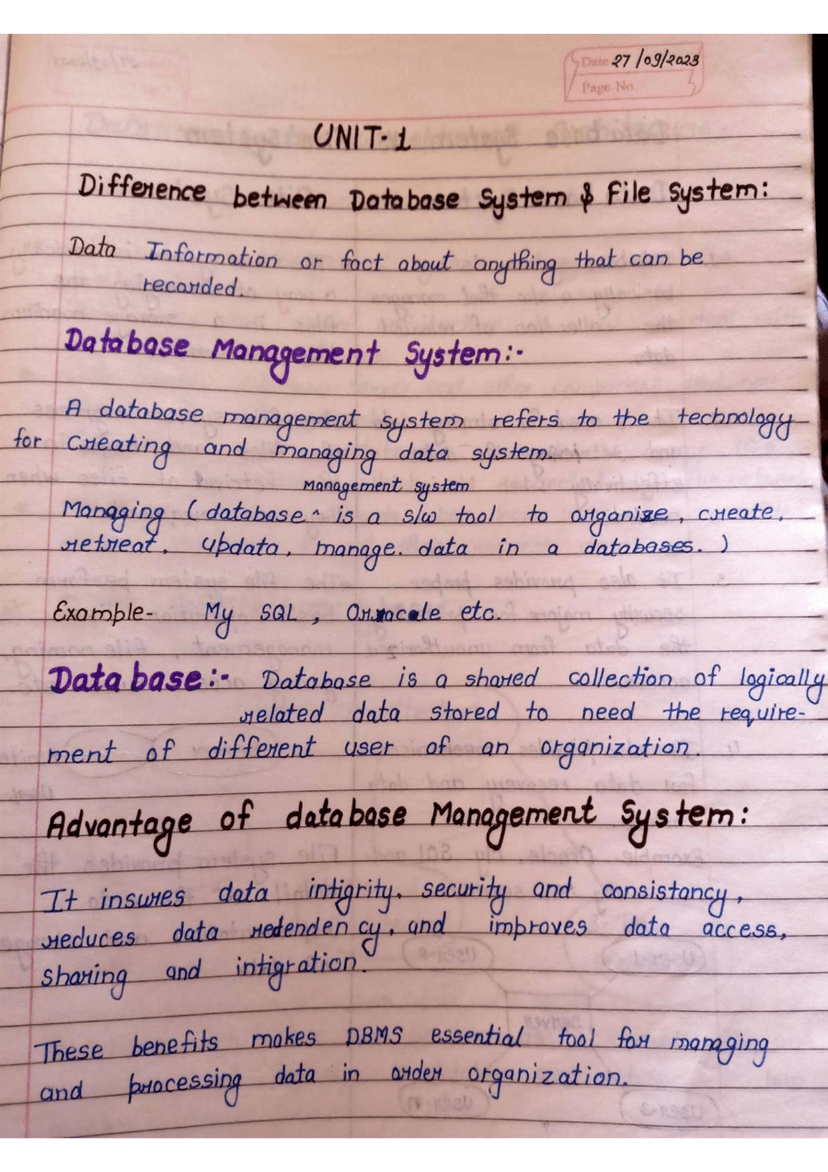 Date 27/09/2023
Page No
UNIT-1
Difference between Database System & File System:
Data Information or fact about anything that can be
recorded.
Database Management System:-
A database management system refers to the technology
for creating and managing data system.
management system
Managing (database ^ is a s/w tool to organize, create,
retreat, updata, manage. data in a databases.)
Example- My SQL, Orracale etc.
Database:- Database is a shared collection of logically
related data stored to need the require-
ment of different user of an organization.
Advantage of database Management System:
It insures data intigrity, security and consistancy,
reduces data redendency, and improves data access,
sharing and intigration.
These benefits makes DBMS essential tool for managing
and processing data in order organization.